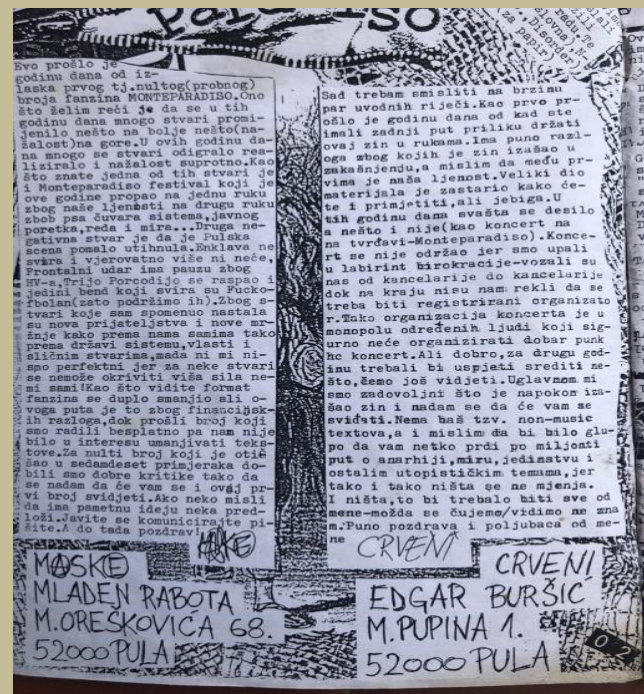 Paradiso
Evo prošlo je
godinu dana od iz-
laska prvog tj.nultog(probnog)
broja fanzina MONTEPARADISO.Ono
što želim reči je da se u tih
godinu dana mnogo stvari promi-
jenilo nešto na bolje nešto(na-
žalost)na gore.U ovih godinu da-
na mnogo se stvari odigralo rea-
liziralo i nažalost suprotno.Kao
što znate jedna od tih stvari je
i Monteparadiso festival koji je
ove godine propao na jednu ruku
zbog naše ljenosti na drugu ruku
zbb psa čuvara sistema,javnog
poretka,reda i mira...Druga ne-
gativna stvar je da je Pulska
scena pomalo utihnula.Enklava ne
svira i vjerovatno više ni neće,
Frontalni udar ima pauzu zbog
HV-a,Trijo Porcodijo se raspao i
jedini bend koji svira su Fucko-
fbolan(zato podržimo ih).Zbog s-
tvari koje sam spomenuo nastala
su nova prijateljstva i nove mr-
žnje kako prema nama samima tako
prema državi sistemu,vlasti i
sličnim stvarima,mada ni mi ni-
smo perfektni jer za neke stvari
se nemože okriviti viša sila ne-
mi sami!Kao što vidite format
fanzina se duplo smanjio ali o-
voga puta je to zbog financijsk-
ih razloga,dok prošli broj koji
smo radili besplatno pa nam nije
bilo u interesu umanjivati teks-
tove.Za nulti broj koji je otiš
šao u sedamdeset primjeraka do-
bili smo dobre kritike tako da
se nadam da će vam se i ovaj pr-
vi broj svidjeti.Ako neko misli
da ima pametnu ideju neka pred-
loži.Javite se komunicirajte pi-
šite.A do tada pozdrav!
MASKE
MASKE
MLADEN RABOTA
M.OREŠKOVIĆA 68.
52000 PULA
Sad trebam smisliti na brzinu
par uvodnih riječi.Kao prvo pr-
ošlo je godinu dana od kad ste
imali zadnji put priliku držati
ovaj zin u rukama.Ima puno razl-
oga zbog kojih je zin izašao u
zakašnjenju,a mislim da među pr-
vima je naša ljenost.Veliki dio
materijala je zastario kako će-
te i primjetiti,ali jebiga.U
tih godinu dana svašta se desilo
a nešto i nije(kao koncert na
tvrđavi-Monteparadiso).Konce-
rt se nije održao jer smo upali
u labirint birokracije-vozali su
nas od kancelarije do kancelarije
dok na kraju nisu nam rekli da se
treba biti registrirani organizato
r.Tako organizacija koncerta je u
monopolu određenih ljudi koji sig-
urno neće organizirati dobar punk
hc koncert.Ali dobro,za drugu god-
inu trebali bi uspjeti srediti ne-
što,ćemo još vidjeti.Uglavnom mi
smo zadovoljni što je napokon iza-
šao zin i nadam se da će vam se
sviđati.Nema baš tzv. non-music
textova,a i mislim da bi bilo glu-
po da vam netko prdi po miljonti
put o anarhiji,miru,jedinstvu i
ostalim utopističkim temama,jer
tako i tako ništa se ne mjenja.
I ništa,to bi trebalo biti sve od
mene-možda se čujemo/vidimo ne zna
m.Puno pozdrava i poljubaca od me-
ne
CRVENI
CRVENI
EDGAR BURŠIĆ
M.PUPINA 1.
52000 PULA
02